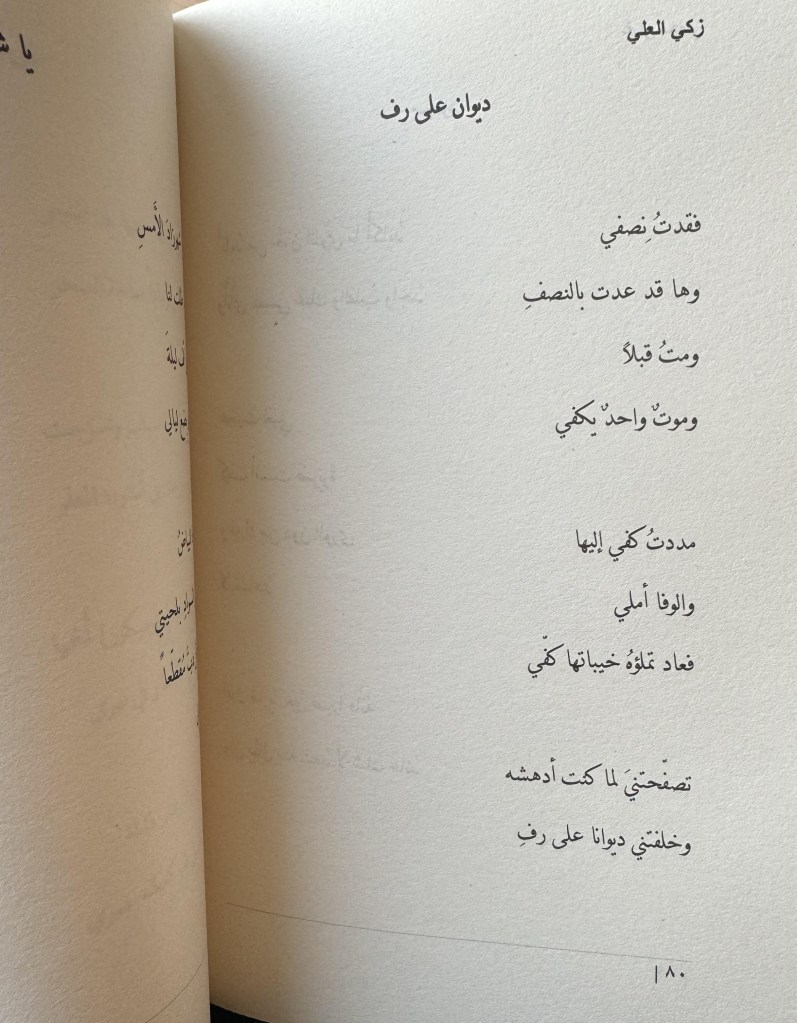 زكي العلي
ديوان على رف
فقدتُ نِصفي
وها قد عدت بالنصفِ
ومتُ قبلاً
وموتٌ واحدٌ يكفي
مددتُ كفي إليها
والوفا أملي
فعاد تملؤهُ خيباتها كفّي
تصفّحتنيَ لما كنت أدهشه
وخلفتني ديوانا على رفِ
٨٠ |
يا
الأَمسِ
لنا
ليلةَ
ليالي
بلحيتي
مُقطّعاً